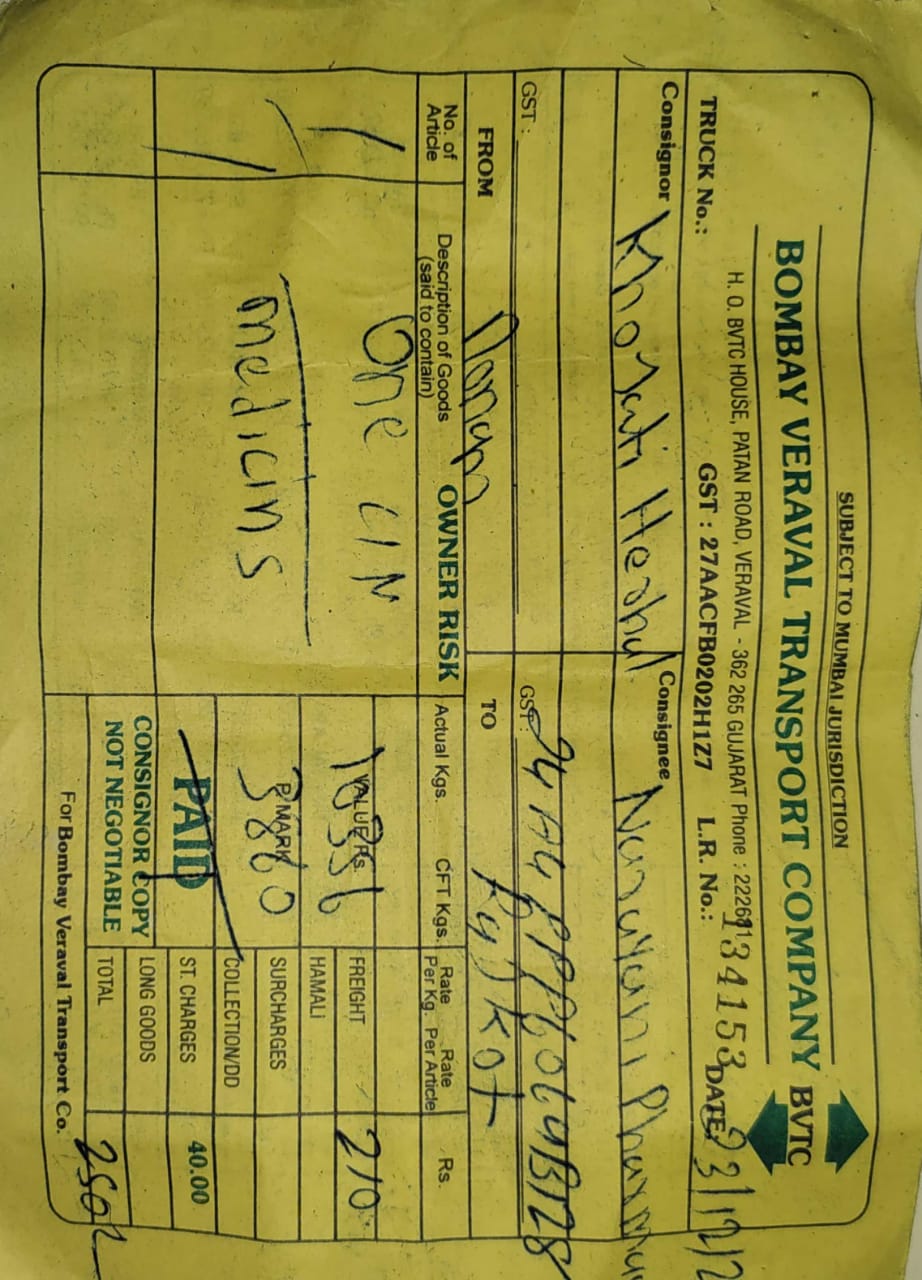 SUBJECT TO MUMBAI JURISDICTION
BOMBAY VERAVAL TRANSPORT COMPANY BVTC
H. O. BVTC HOUSE, PATAN ROAD, VERAVAL - 362 265 GUJARAT Phone : 222681
TRUCK No.: GST : 27AACFB0202H1Z7 L.R. No.: 134153 DATE: 23/12/2
Consignor Consignee Narayani Pharma
GST : GST:
FROM TO Rajkot
No. of Article Description of Goods (said to contain) OWNER RISK Actual Kgs. CFT Kgs. Rate Per Kg. Rate Per Article Rs.
1 One C/N VALUE Rs. FREIGHT 210
HAMALI
medicins P/MARK 3860 SURCHARGES
COLLECTION/DD
PAID ST. CHARGES 40.00
CONSIGNOR COPY LONG GOODS
NOT NEGOTIABLE TOTAL 250/-
For Bombay Veraval Transport Co.